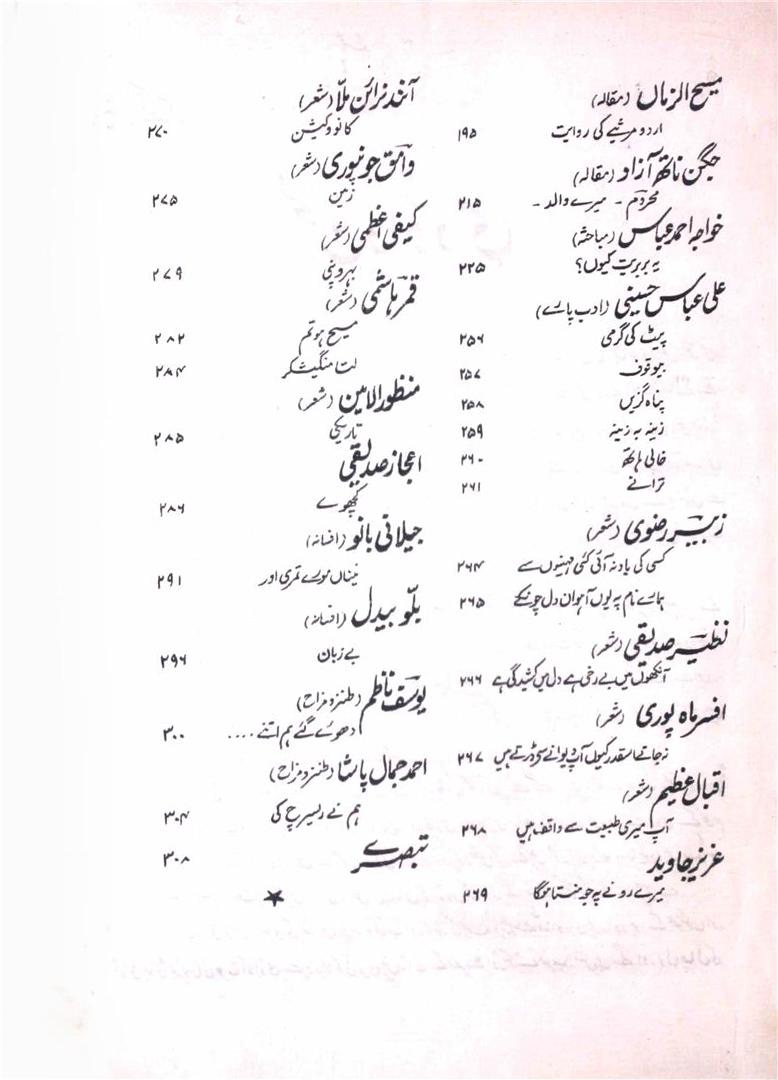 مسیح الزماں (مقالہ)
اردو مرثیے کی روایت ۱۹۵
جگن ناتھ آزاد (مقالہ)
محروم - میرے والد - ۲۱۵
خواجہ احمد عباس (مباحثہ)
یہ بربریت کیوں؟ ۲۲۵
علی عباس حسینی (ادب پارے)
پیٹ کی گرمی ۲۵۶
بیوقوف ۲۵۷
پناہ گزیں ۲۵۸
زینہ بہ زینہ ۲۵۹
خالی ہاتھ ۲۶۰
ترانے ۲۶۱
زبیر رضوی (شعر)
کسی کی یاد نہ آئی کئی مہینوں سے ۲۶۴
ہمارے نام پہ یوں آہوان دل چونکے ۲۶۵
نظیر صدیقی (شعر)
آنکھوں میں بے رخی ہے دل میں کشیدگی ہے ۲۶۶
افسر ماہ پوری (شعر)
نہ جانے اسقدر کیوں آپ دیوانے سے ڈرتے ہیں ۲۶۷
اقبال عظیم (شعر)
آپ میری طبیعت سے واقف ہیں ۲۶۸
عزیز جاوید
میرے رونے پہ جو ہنستا ہوگا ۲۶۹
آنند نرائن ملّا (شعر)
کانووکیشن ۲۷۰
وامق جونپوری (شعر)
زمین ۲۷۵
کیفی اعظمی (شعر)
بہروپنی ۲۷۹
قمر ہاشمی (شعر)
مسیح ہو تم ۲۸۲
لتا منگیشکر ۲۸۴
منظور الامین (شعر)
تاریکی ۲۸۵
اعجاز صدیقی
کچھوے ۲۸۶
جیلانی بانو (افسانہ)
نیناں مورے تمری اور ۲۹۱
بلّو بیدل (افسانہ)
بے زبان ۲۹۶
یوسف ناظم (طنز و مزاح)
دھوئے گئے ہم اتنے .... ۳۰۰
احمد جمال پاشا (طنز و مزاح)
ہم نے ریسرچ کی ۳۰۴
تبصرے ۳۰۸